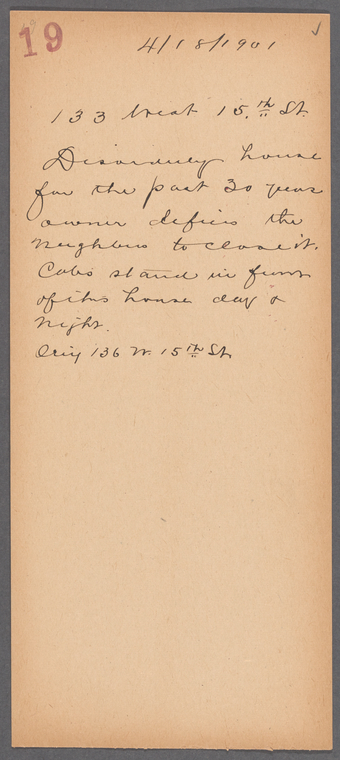 19
4/18/1901
133 West 15.th St.
Disorderly house
for the past 30 years
owner defies the
neighbors to close it.
Cabs stand in front
of this house day &
night.
Orig 136 W. 15th St.